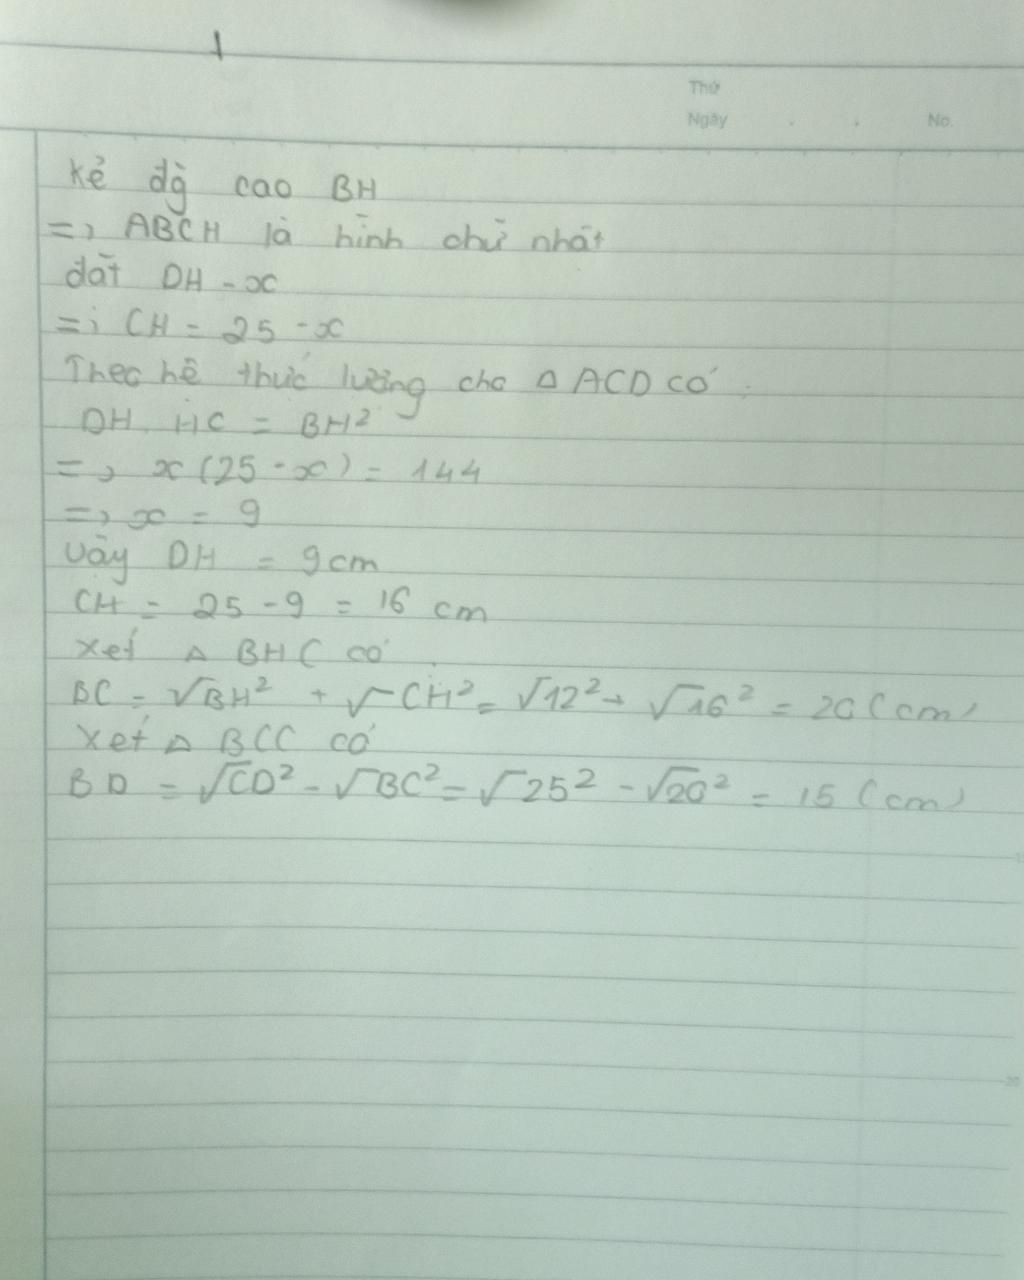 Thứ
Ngày . . No.
Kẻ đg cao BH
=> ABCH là hình chữ nhật
đặt DH = x
=> CH = 25 - x
Theo hệ thức lượng cho Δ ACD có:
DH. HC = BH²
=> x(25 - x) = 144
=> x = 9
Vậy DH = 9cm
CH = 25 - 9 = 16 cm
Xét Δ BHC có
BC = √BH² + √CH² = √12² + √16² = 20 (cm)
Xét Δ BCC có
BD = √CD² - √BC² = √25² - √20² = 15 (cm)
20